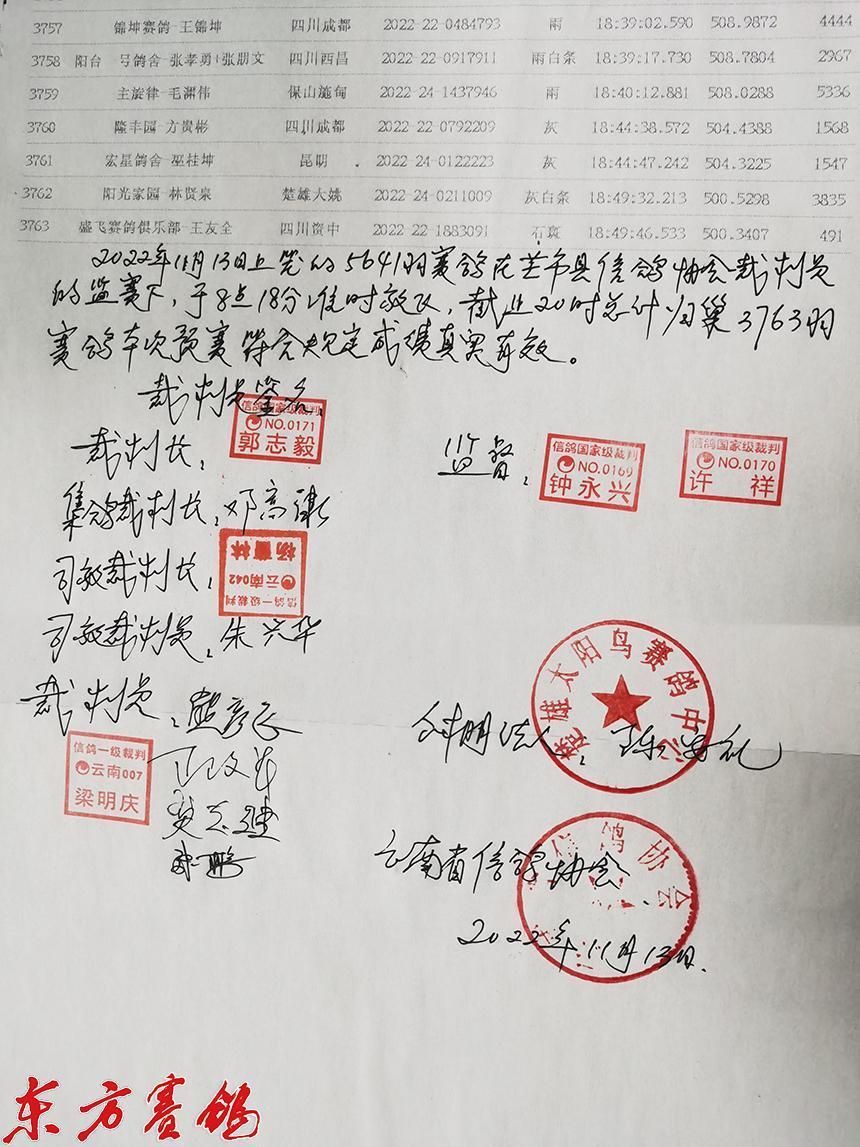 3757 锦坤赛鸽-王锦坤 四川成都 2022-22-0484793 雨 18:39:02.590 508.9872 4444
3758 阳台 号鸽舍-张孝勇(张朋文 四川西昌 2022-22-0917911 雨白条 18:39:17.730 508.7804 2967
3759 主旋律-毛渊伟 保山施甸 2022-24-1437946 雨 18:40:12.881 508.0288 5336
3760 隆丰园-方贵彬 四川成都 2022-22-0792209 灰 18:44:38.572 504.4388 1568
3761 宏星鸽舍-巫桂坤 昆明 2022-24-0122223 灰 18:44:47.242 504.3225 1547
3762 阳光家园-林贤泉 楚雄大姚 2022-24-0211009 灰白条 18:49:32.213 500.5298 3835
3763 盛飞赛鸽俱乐部-王友全 四川资中 2022-22-1883091 石斑 18:49:46.533 500.3407 491
2022年11月13日上笼的5641羽赛鸽在芒市县信鸽协会裁判员
的监赛下,于8点18分准时放飞,截止20时总计归巢3763羽
赛鸽本次预赛符合规定成绩真实有效。
裁判员签名:
信鸽国家级裁判
NO.0171
郭志毅
裁判长:
监督:
信鸽国家级裁判
NO.0169
钟永兴
信鸽国家级裁判
NO.0170
许祥
集鸽裁判长:邓高
司放裁判长:
信鸽一级裁判
云南042
杨富林
司放裁判员:朱兴华
裁判员:熊彦
信鸽一级裁判
云南007
梁明庆
楚雄太阳鸟赛鸽中心
云南省信鸽协会
信鸽协会
2022年11月13日.
东方赛鸽